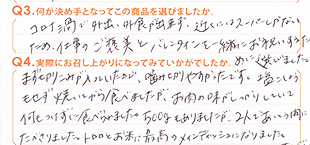 Q3.何が決め手となってこの商品を選びましたか。
コロナ渦で外出・外食が出来ず、近くにはスーパーしかない
ため、仕事のご褒美とバレンタインを一緒にお祝いするた
めに買いました。
Q4.実際にお召し上がりになってみていかがでしたか。
まず切りこみが入っていたので、噛み切りやすかったです。塩こしょう
もせず焼いてから食べましたが、お肉の味がしっかりしていて
何もつけずに食べれました。500gもありましたが、2人であっという間に
たいらげました。トロロとお米に最高のメインディッシュになりました。